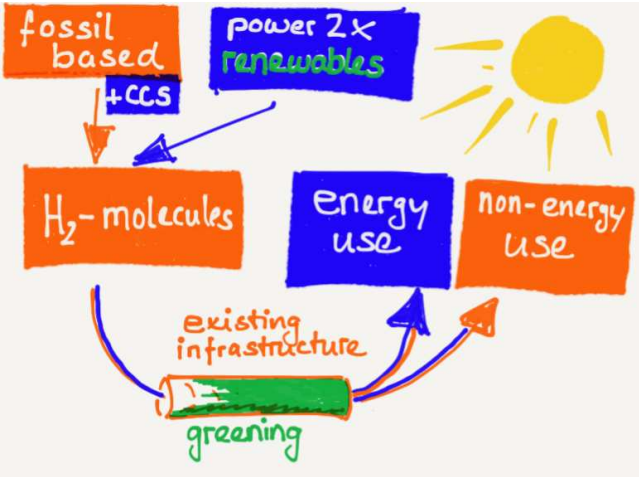 fossil
based
+CCS
power 2x
renewables
H₂-molecules
energy
use
non-energy
use
existing
infrastructure
greening